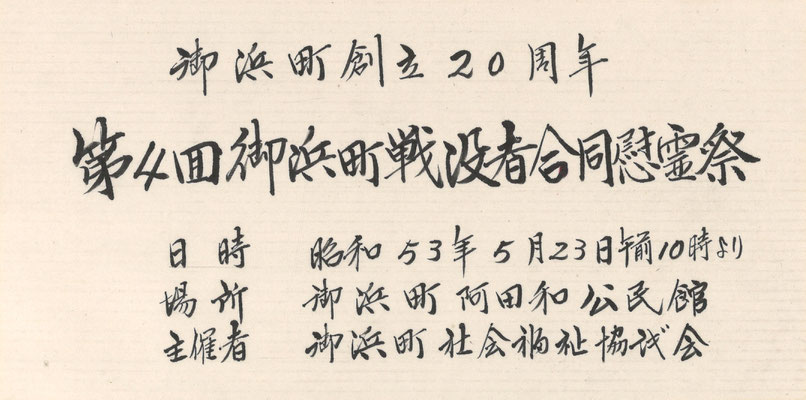 御浜町創立20周年
第4回御浜町戦没者合同慰霊祭
日時 昭和53年5月23日午前10時より
場所 御浜町阿田和公民館
主催者 御浜町社会福祉協议会